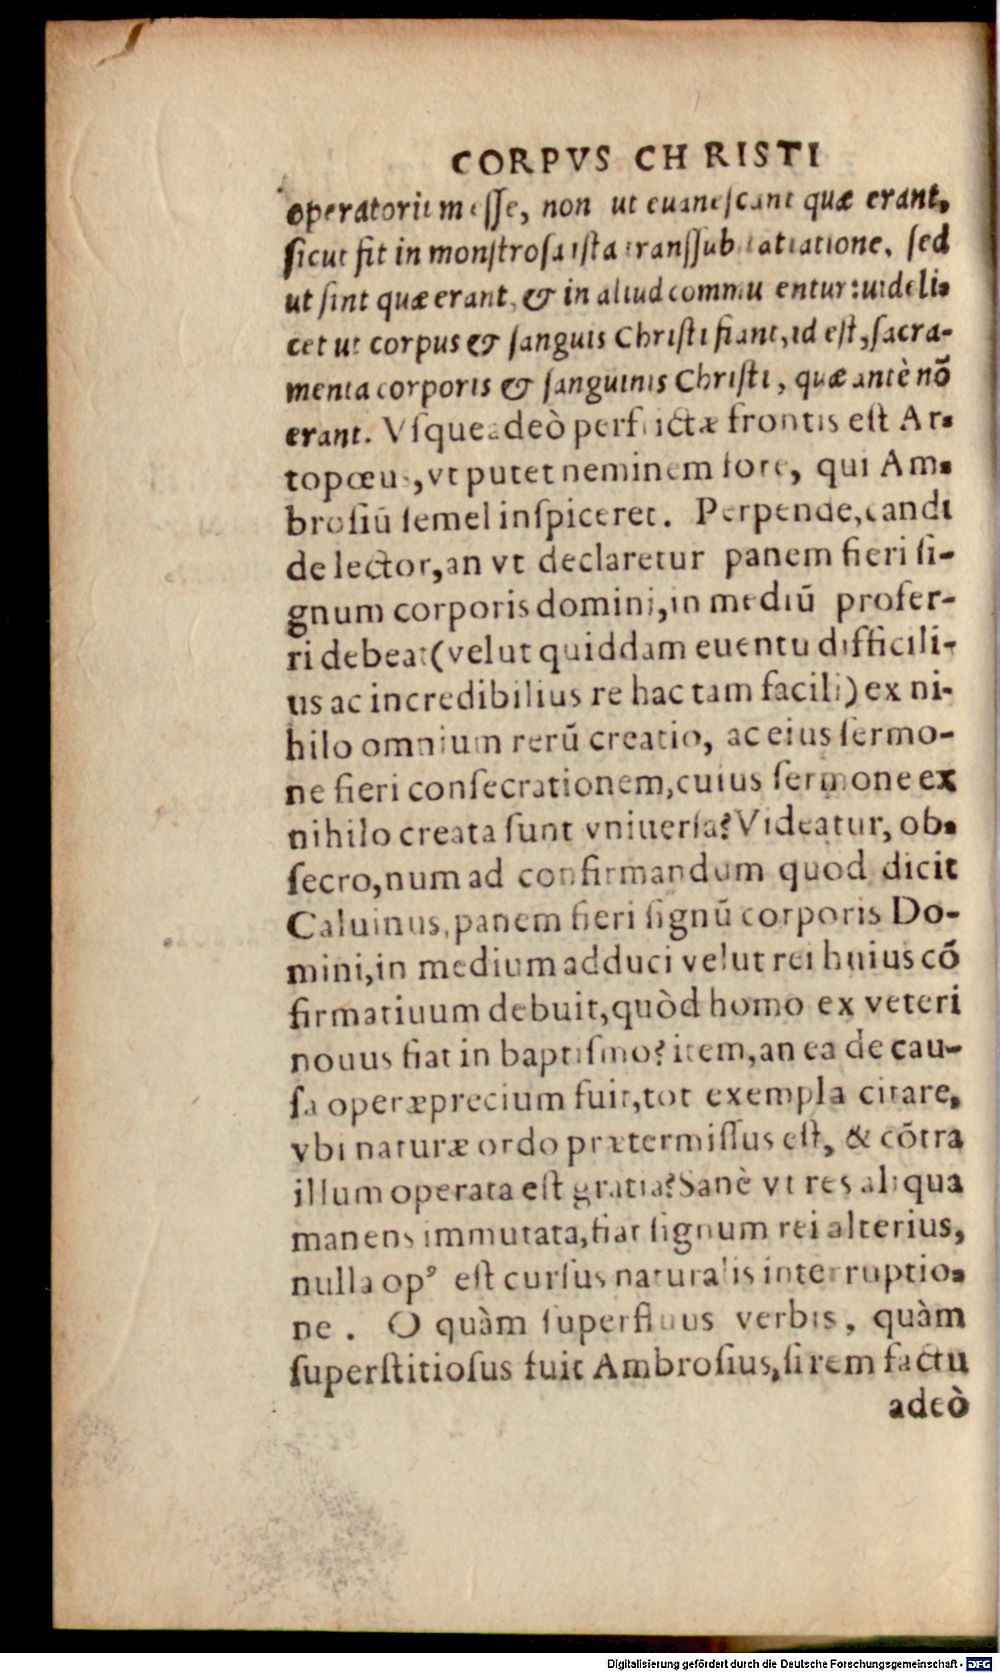 CORPVS CHRISTI
operatoriũ messe, non ut euanescant quæ erant,
sicut fit in monstrosa ista transsubstatiatione, sed
ut sint quæ erant, & in aliud commutentur: uideli-
cet ut corpus & sanguis Christi fiant, id est, sacra-
menta corporis & sanguinis Christi, quæ antè nõ
erant. Vsqueadeò perfrictæ frontis est Ar-
topœus, vt putet neminem fore, qui Am-
brosiũ semel inspiceret. Perpende, candi
de lector, an vt declaretur panem fieri si-
gnum corporis domini, in mediũ profer-
ri debeat (velut quiddam euentu difficili-
us ac incredibilius re hac tam facili) ex ni-
hilo omnium rerũ creatio, ac eius sermo-
ne fieri consecrationem, cuius sermone ex
nihilo creata sunt vniuersa? Videatur, ob-
secro, num ad confirmandum quod dicit
Caluinus, panem fieri signũ corporis Do-
mini, in medium adduci velut rei huius cõ
firmatiuum debuit, quòd homo ex veteri
nouus fiat in baptismo? item, an ea de cau-
sa operæprecium fuit, tot exempla citare,
vbi naturæ ordo prætermissus est, & cõtra
illum operata est gratia? Sanè vt res aliqua
manens immutata, fiat signum rei alterius,
nulla opꝰ est cursus naturalis interruptio-
ne. O quàm superfluus verbis, quàm
superstitiosus fuit Ambrosius, si rem factu
adeò
Digitalisierung gefördert durch die Deutsche Forschungsgemeinschaft - DFG